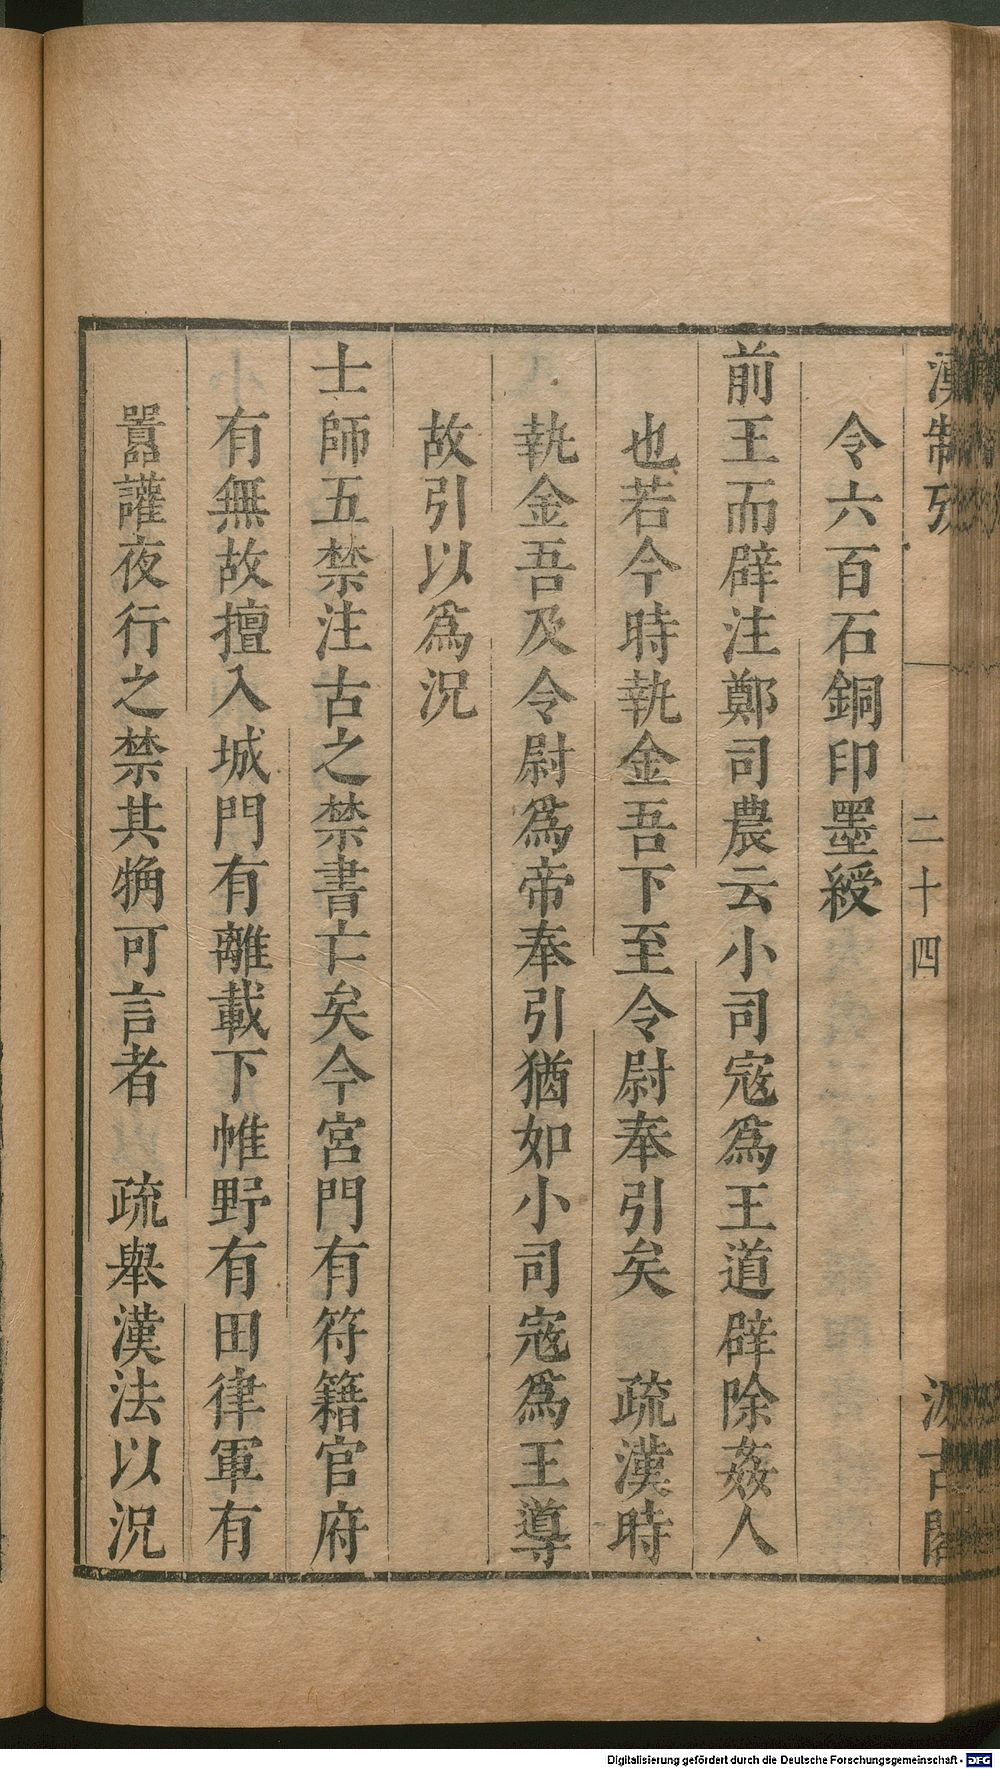 漢制攷
二十四
汲古閣
令六百石銅印墨綬
前王而辟注鄭司農云小司寇爲王道辟除姦人
也若今時執金吾下至令尉奉引矣　疏漢時
執金吾及令尉爲帝奉引猶如小司寇爲王導
故引以爲況
士師五禁注古之禁書亡矣今宮門有符籍官府
有無故擅入城門有離載下帷野有田律軍有
囂讙夜行之禁其觕可言者　疏舉漢法以況
Digitalisierung gefördert durch die Deutsche Forschungsgemeinschaft - DFG